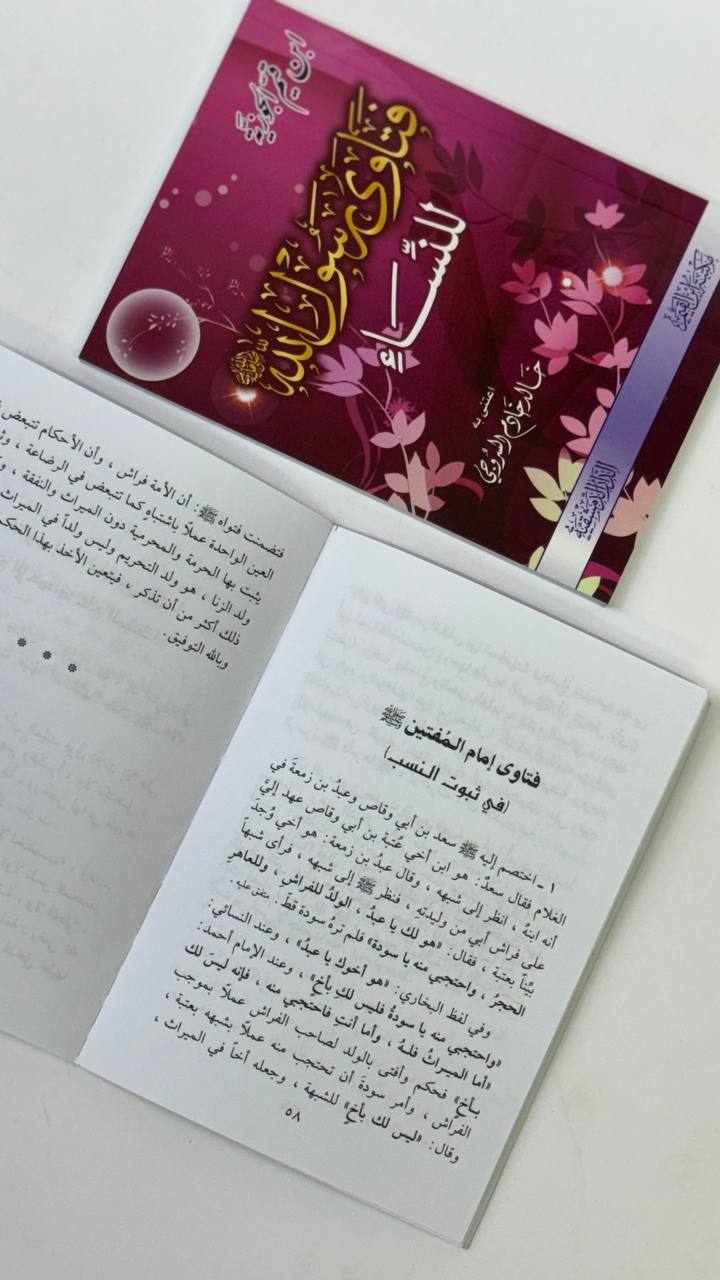 ابن قيم الجوزية
فتاوى رسول الله ﷺ
للنساء
اعتنى به
خالد خادم السروجي
الدار الدمشقية
فتضمنت فتواه ﷺ: أن الأمة فراش ، وأن الأحكام تتبعض
العين الواحدة عملاً باشتباهٍ كما تتبعض في الرضاعة ،
يثبت بها الحرمة والمحرمية دون الميراث والنفقة ،
ولد الزنا ، هو ولد التحريم وليس ولداً في الميراث
ذلك أكثر من أن تذكر ، فيتعين الأخذ بهذا الحكم
وبالله التوفيق.
* * *
فتاوى إمام المُفتين ﷺ
(في ثبوت النسب)
١ ـ اختصم إليه ﷺ سعد بن أبي وقاص وعبدُ بن زمعة في
الغلام فقال سعدٌ: هو ابن أخي عُتبة بن أبي وقاص عهد إليَّ
أنه ابنهُ ، انظر إلى شبهه ، وقال عبدُ بن زمعة: هو أخي وُجدَ
على فراش أبي من وليدتِهِ ، فنظر ﷺ إلى شبهه ، فرأى شبهاً
بيّناً بعتبة ، فقال: «هو لك يا عبدُ ، الولدُ للفراش ، وللعاهر
الحجرُ ، واحتجبي منه يا سودة» فلم ترهُ سودة قطّ. متفق عليه.
وفي لفظ البخاري: «هو أخوك يا عبدُ» ، وعند النسائي:
«واحتجبي منه يا سودةُ فليس لكِ بأخٍ» ، وعند الإمام أحمد:
«أما الميراثُ فلهُ ، وأما أنتِ فاحتجبي منه ، فإنه ليسَ لك
بأخٍ» فحكم وأفتى بالولد لصاحب الفراش عملاً بموجب
الفراش ، وأمر سودةَ أن تحتجب منه عملاً بشبهه بعتبة ،
وقال: «ليس لك بأخٍ» للشبهة ، وجعله أخاً في الميراث ،
٥٨